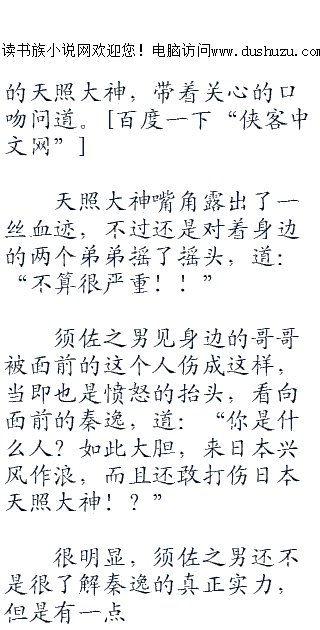 读书族小说网欢迎您！电脑访问www.dushuzu.com
的天照大神，带着关心的口
吻问道。[百度一下“侠客中
文网”]
天照大神嘴角露出了一
丝血迹，不过还是对着身边
的两个弟弟摇了摇头，道：
“不算很严重！！”
须佐之男见身边的哥哥
被面前的这个人伤成这样，
当即也是愤怒的抬头，看向
面前的秦逸，道：“你是什
么人？如此大胆，来日本兴
风作浪，而且还敢打伤日本
天照大神！？”
很明显，须佐之男还不
是很了解秦逸的真正实力，
但是有一点